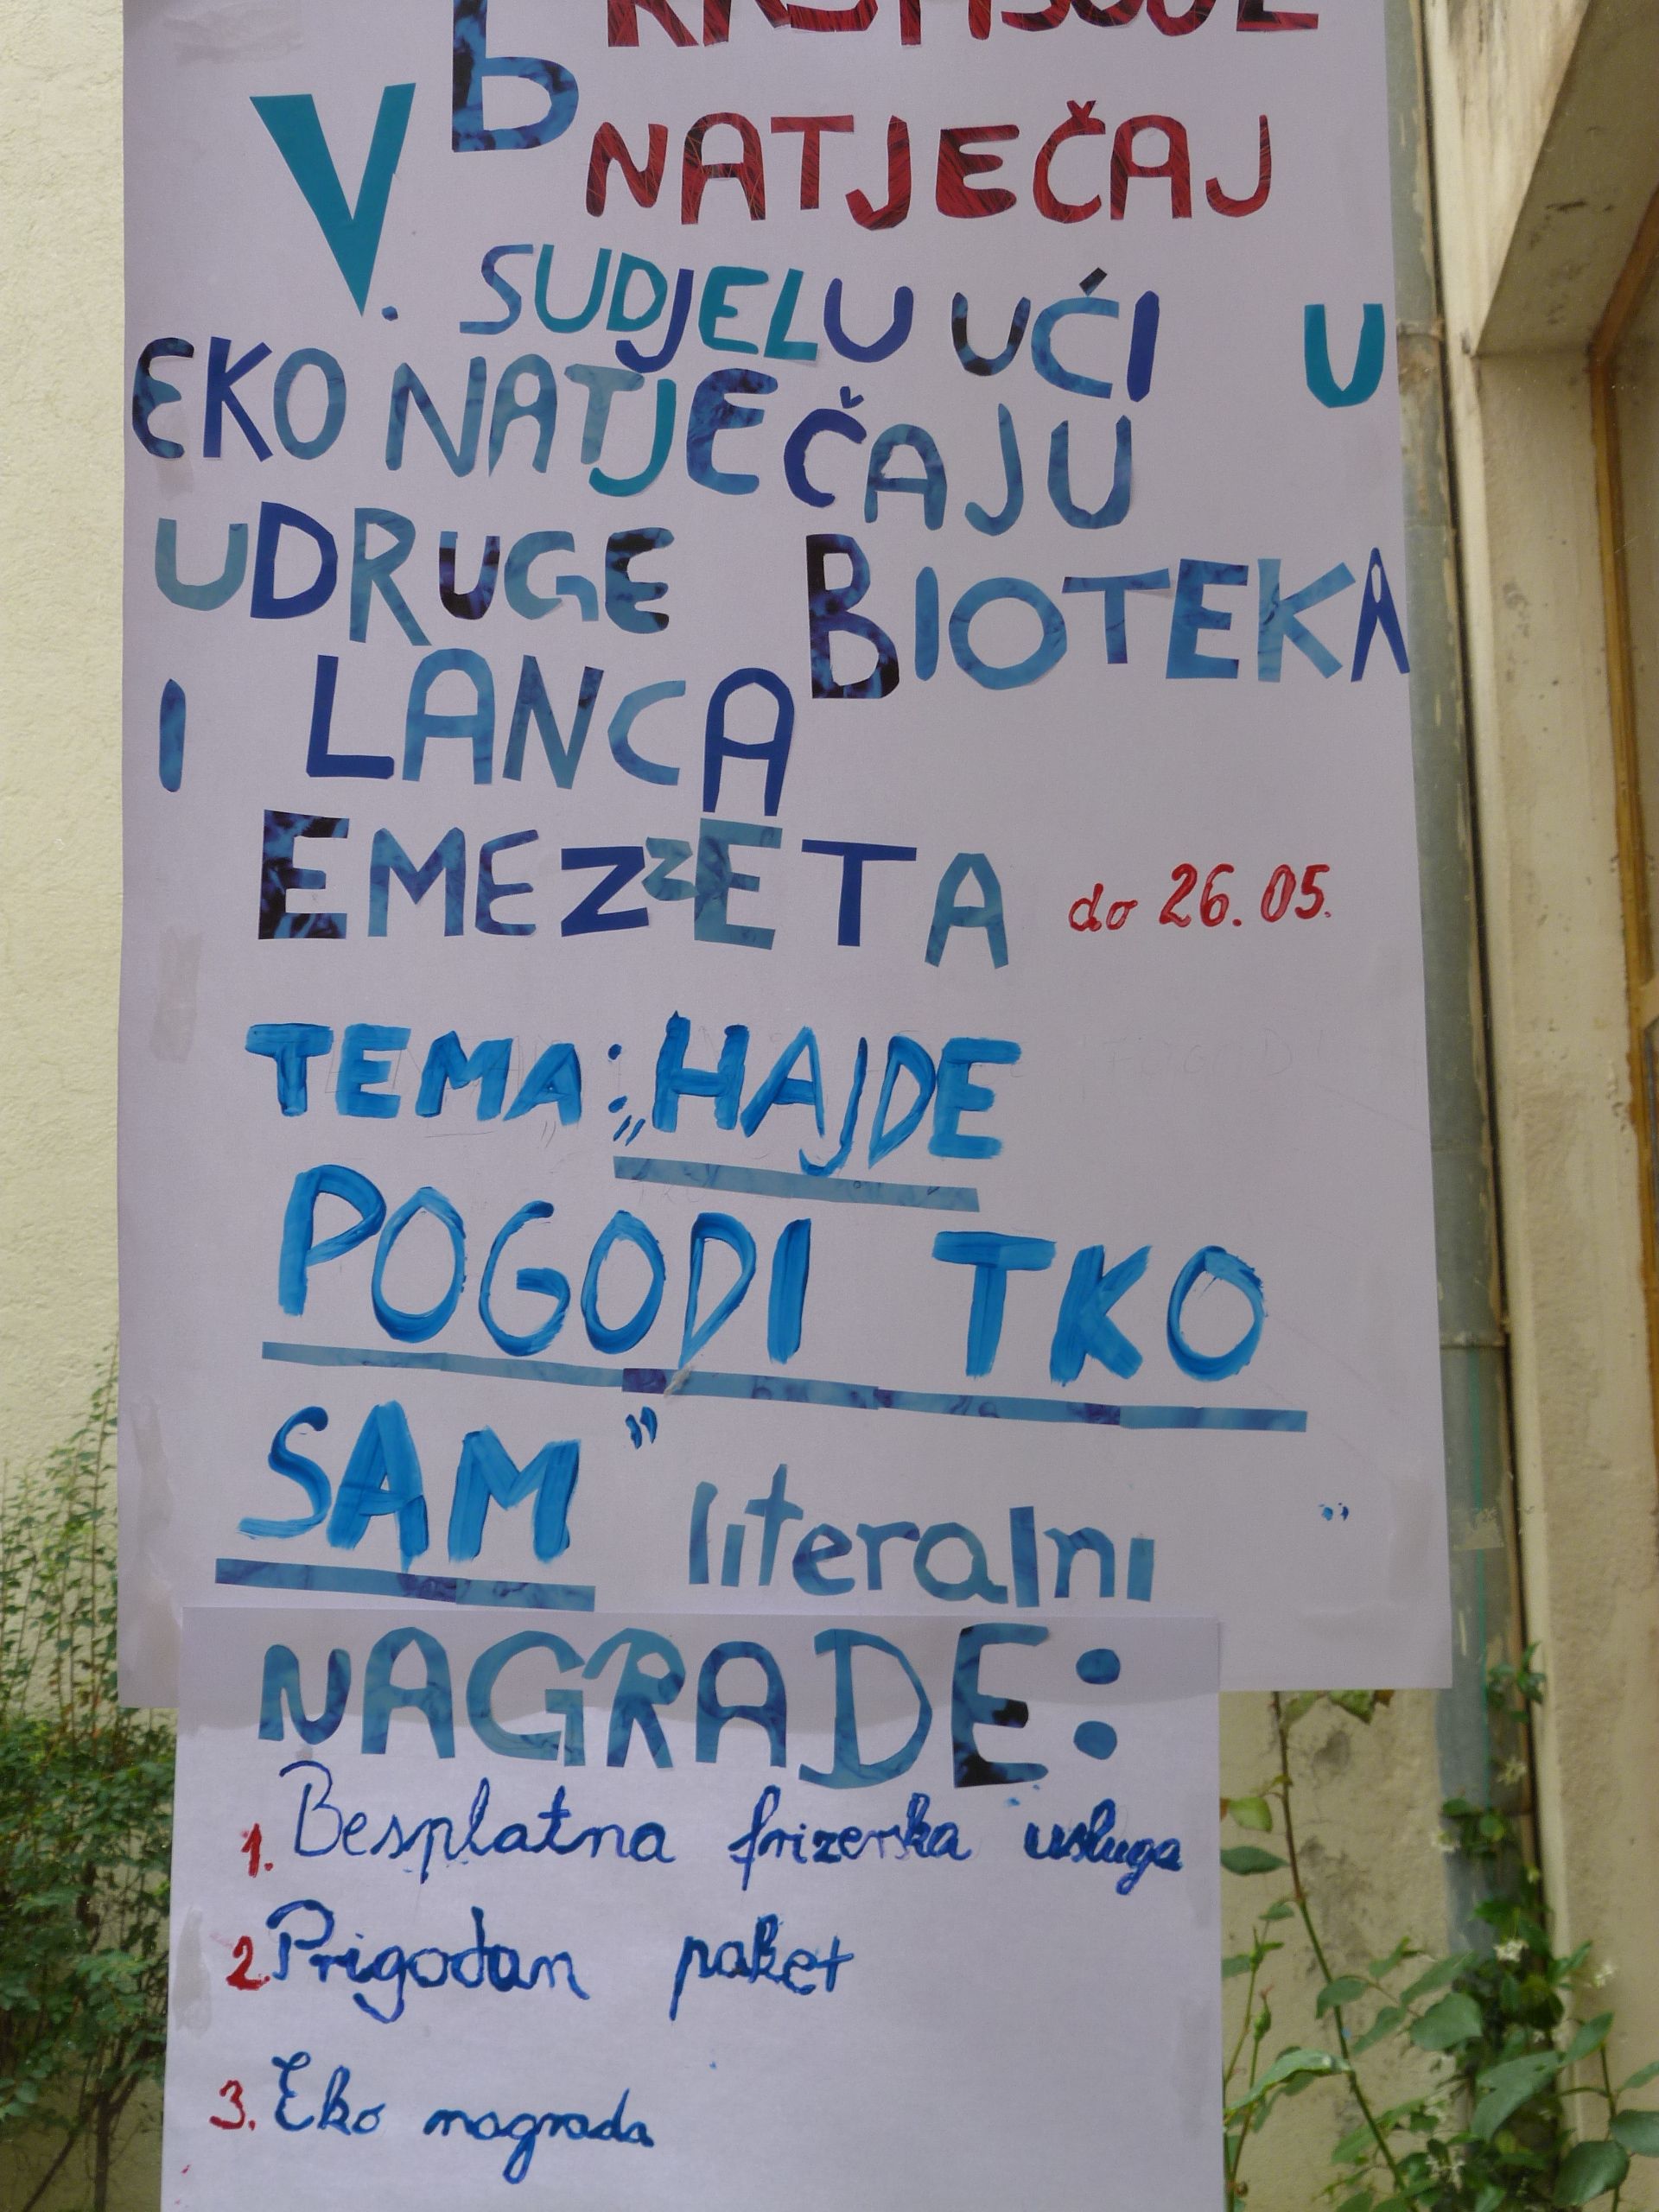 NATJEČAJ
V. SUDJELUUĆI U
EKO NATJEČAJU
UDRUGE BIOTEKA
I LANCA
EMEZZETA do 26.05.
TEMA: „HAJDE
POGODI TKO
SAM" literalni
NAGRADE:
1. Besplatna frizerska usluga
2. Prigodan paket
3. Eko nagrada